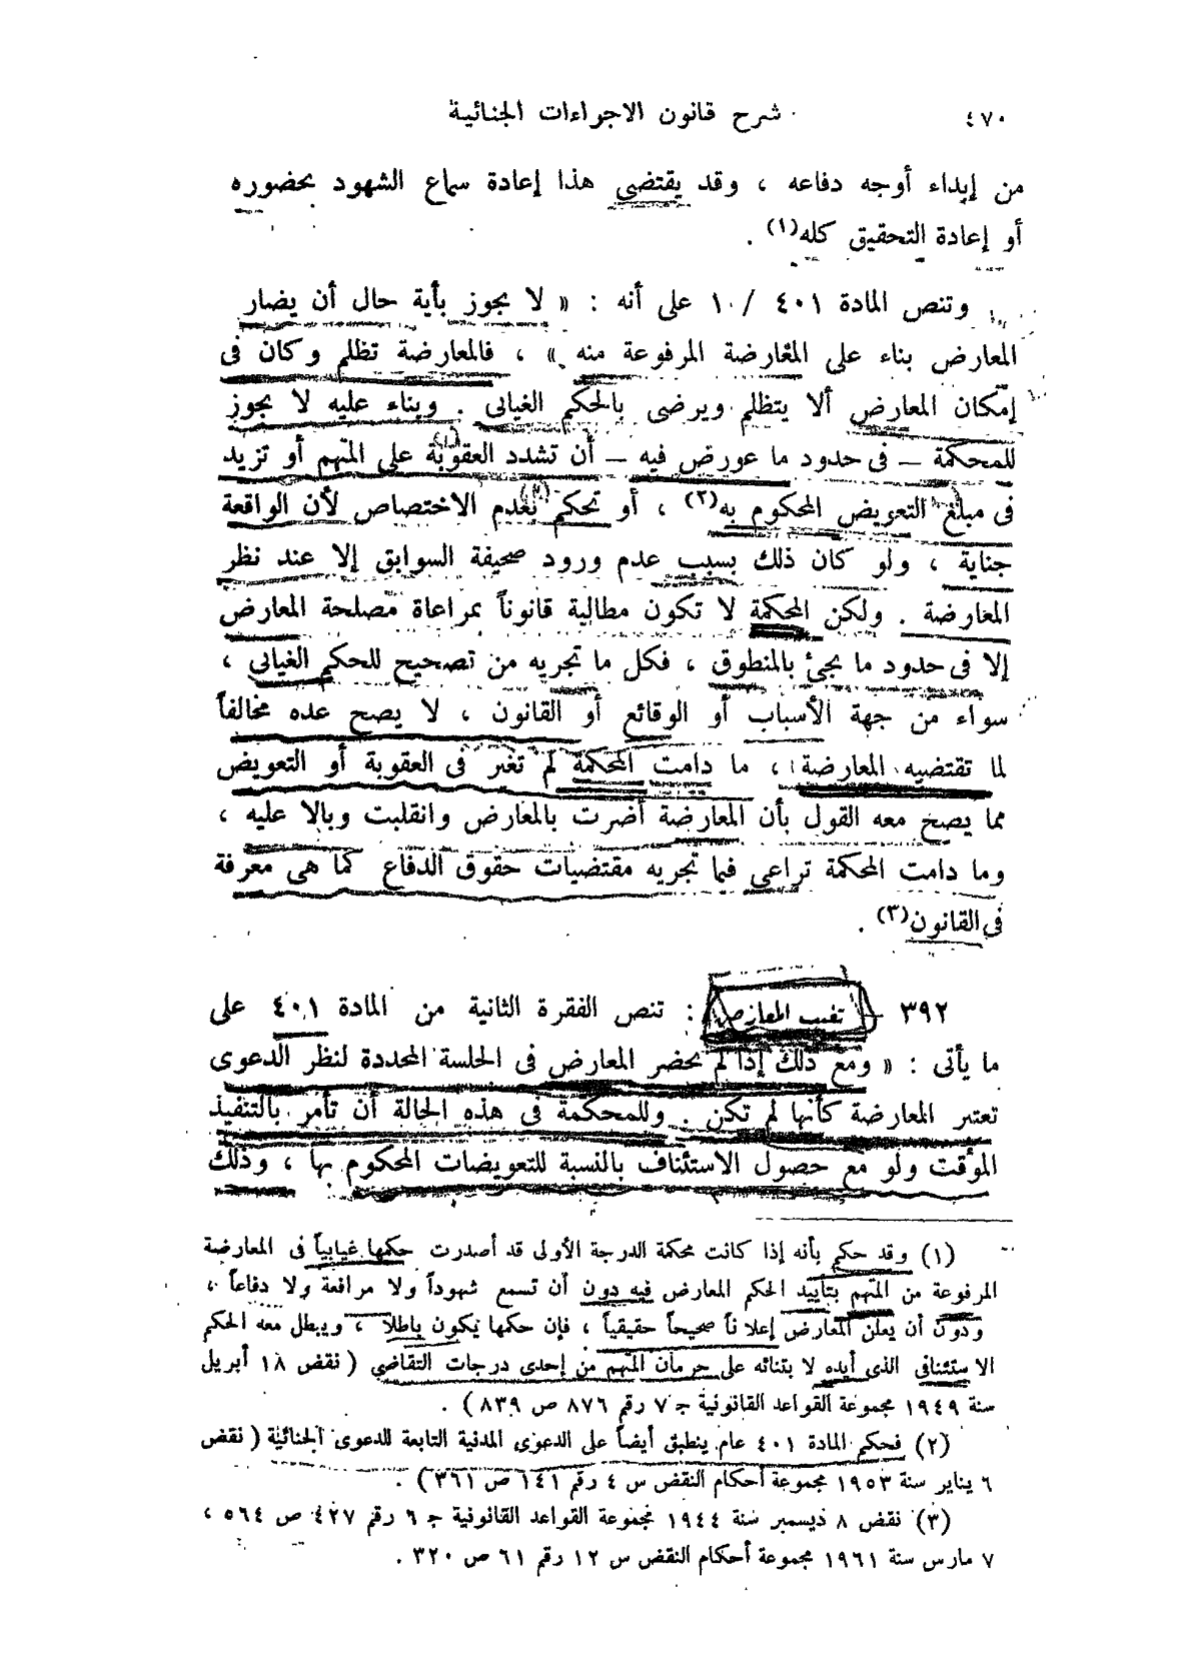 ٤٧٠ شرح قانون الاجراءات الجنائية
من إبداء أوجه دفاعه ، وقد يقتضى هذا إعادة سماع الشهود بحضوره
أو إعادة التحقيق كله(١) .
وتنص المادة ٤٠١ / ١ على أنه : « لا يجوز بأية حال أن يضار
المعارض بناء على المعارضة المرفوعة منه » ، فالمعارضة تظلم وكان فى
إمكان المعارض ألا يتظلم ويرضى بالحكم الغيابى . وبناء عليه لا يجوز
للمحكمة – فى حدود ما عورض فيه – أن تشدد العقوبة على المتهم أو تزيد
فى مبلغ التعويض المحكوم به(٢) ، أو تحكم بعدم الاختصاص لأن الواقعة
جناية ، ولو كان ذلك بسبب عدم ورود صحيفة السوابق إلا عند نظر
المعارضة . ولكن المحكمة لا تكون مطالبة قانوناً بمراعاة مصلحة المعارض
إلا فى حدود ما يجئ بالمنطوق ، فكل ما تجريه من تصحيح للحكم الغيابى ،
سواء من جهة الأسباب أو الوقائع أو القانون ، لا يصح عده مخالفاً
لما تقتضيه المعارضة ، ما دامت المحكمة لم تغير فى العقوبة أو التعويض
مما يصح معه القول بأن المعارضة أضرت بالمعارض وانقلبت وبالا عليه ،
وما دامت المحكمة تراعى فيما تجريه مقتضيات حقوق الدفاع كما هى معرفة
فى القانون(٣) .
٣٩٢ – تغيب المعارض : تنص الفقرة الثانية من المادة ٤٠١ على
ما يأتى : « ومع ذلك إذا لم يحضر المعارض فى الجلسة المحددة لنظر الدعوى
تعتبر المعارضة كأنها لم تكن . وللمحكمة فى هذه الحالة أن تأمر بالتنفيذ
المؤقت ولو مع حصول الاستئناف بالنسبة للتعويضات المحكوم بها ، وذلك
(١) وقد حكم بأنه إذا كانت محكمة الدرجة الأولى قد أصدرت حكمها غيابياً فى المعارضة
المرفوعة من المتهم بتأييد الحكم المعارض فيه دون أن تسمع شهوداً ولا مرافعة ولا دفاعاً ،
ودون أن يعلن المعارض إعلاناً صحيحاً حقيقياً ، فإن حكمها يكون باطلا ، ويبطل معه الحكم
الاستئنافى الذى أيده لابتنائه على حرمان المتهم من إحدى درجات التقاضى ( نقض ١٨ أبريل
سنة ١٩٤٩ مجموعة القواعد القانونية ج ٧ رقم ٨٧٦ ص ٨٣٩ ) .
(٢) فحكم المادة ٤٠١ عام ينطبق أيضاً على الدعوى المدنية التابعة للدعوى الجنائية ( نقض
٦ يناير سنة ١٩٥٣ مجموعة أحكام النقض س ٤ رقم ١٤١ ص ٣٦١ ) .
(٣) نقض ٨ ديسمبر سنة ١٩٤٤ مجموعة القواعد القانونية ج ٦ رقم ٤٢٧ ص ٥٦٤ ،
٧ مارس سنة ١٩٦١ مجموعة أحكام النقض س ١٢ رقم ٦١ ص ٣٢٠ .